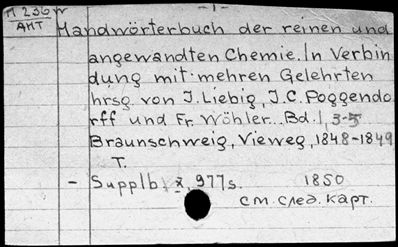 П 236
АНТ
- 1 -
Handwörterbuch der reinen und
angewandten Chemie. In Verbin
dung mit mehren Gelehrten
hrsg von J. Liebig, J.C. Poggendo
rff und Fr. Wöhler. Bd. 1, 3-5
Braunschweig, Vieweg, 1848-1849
T.
- Supplb. , 977s. 1850
см. след. карт.